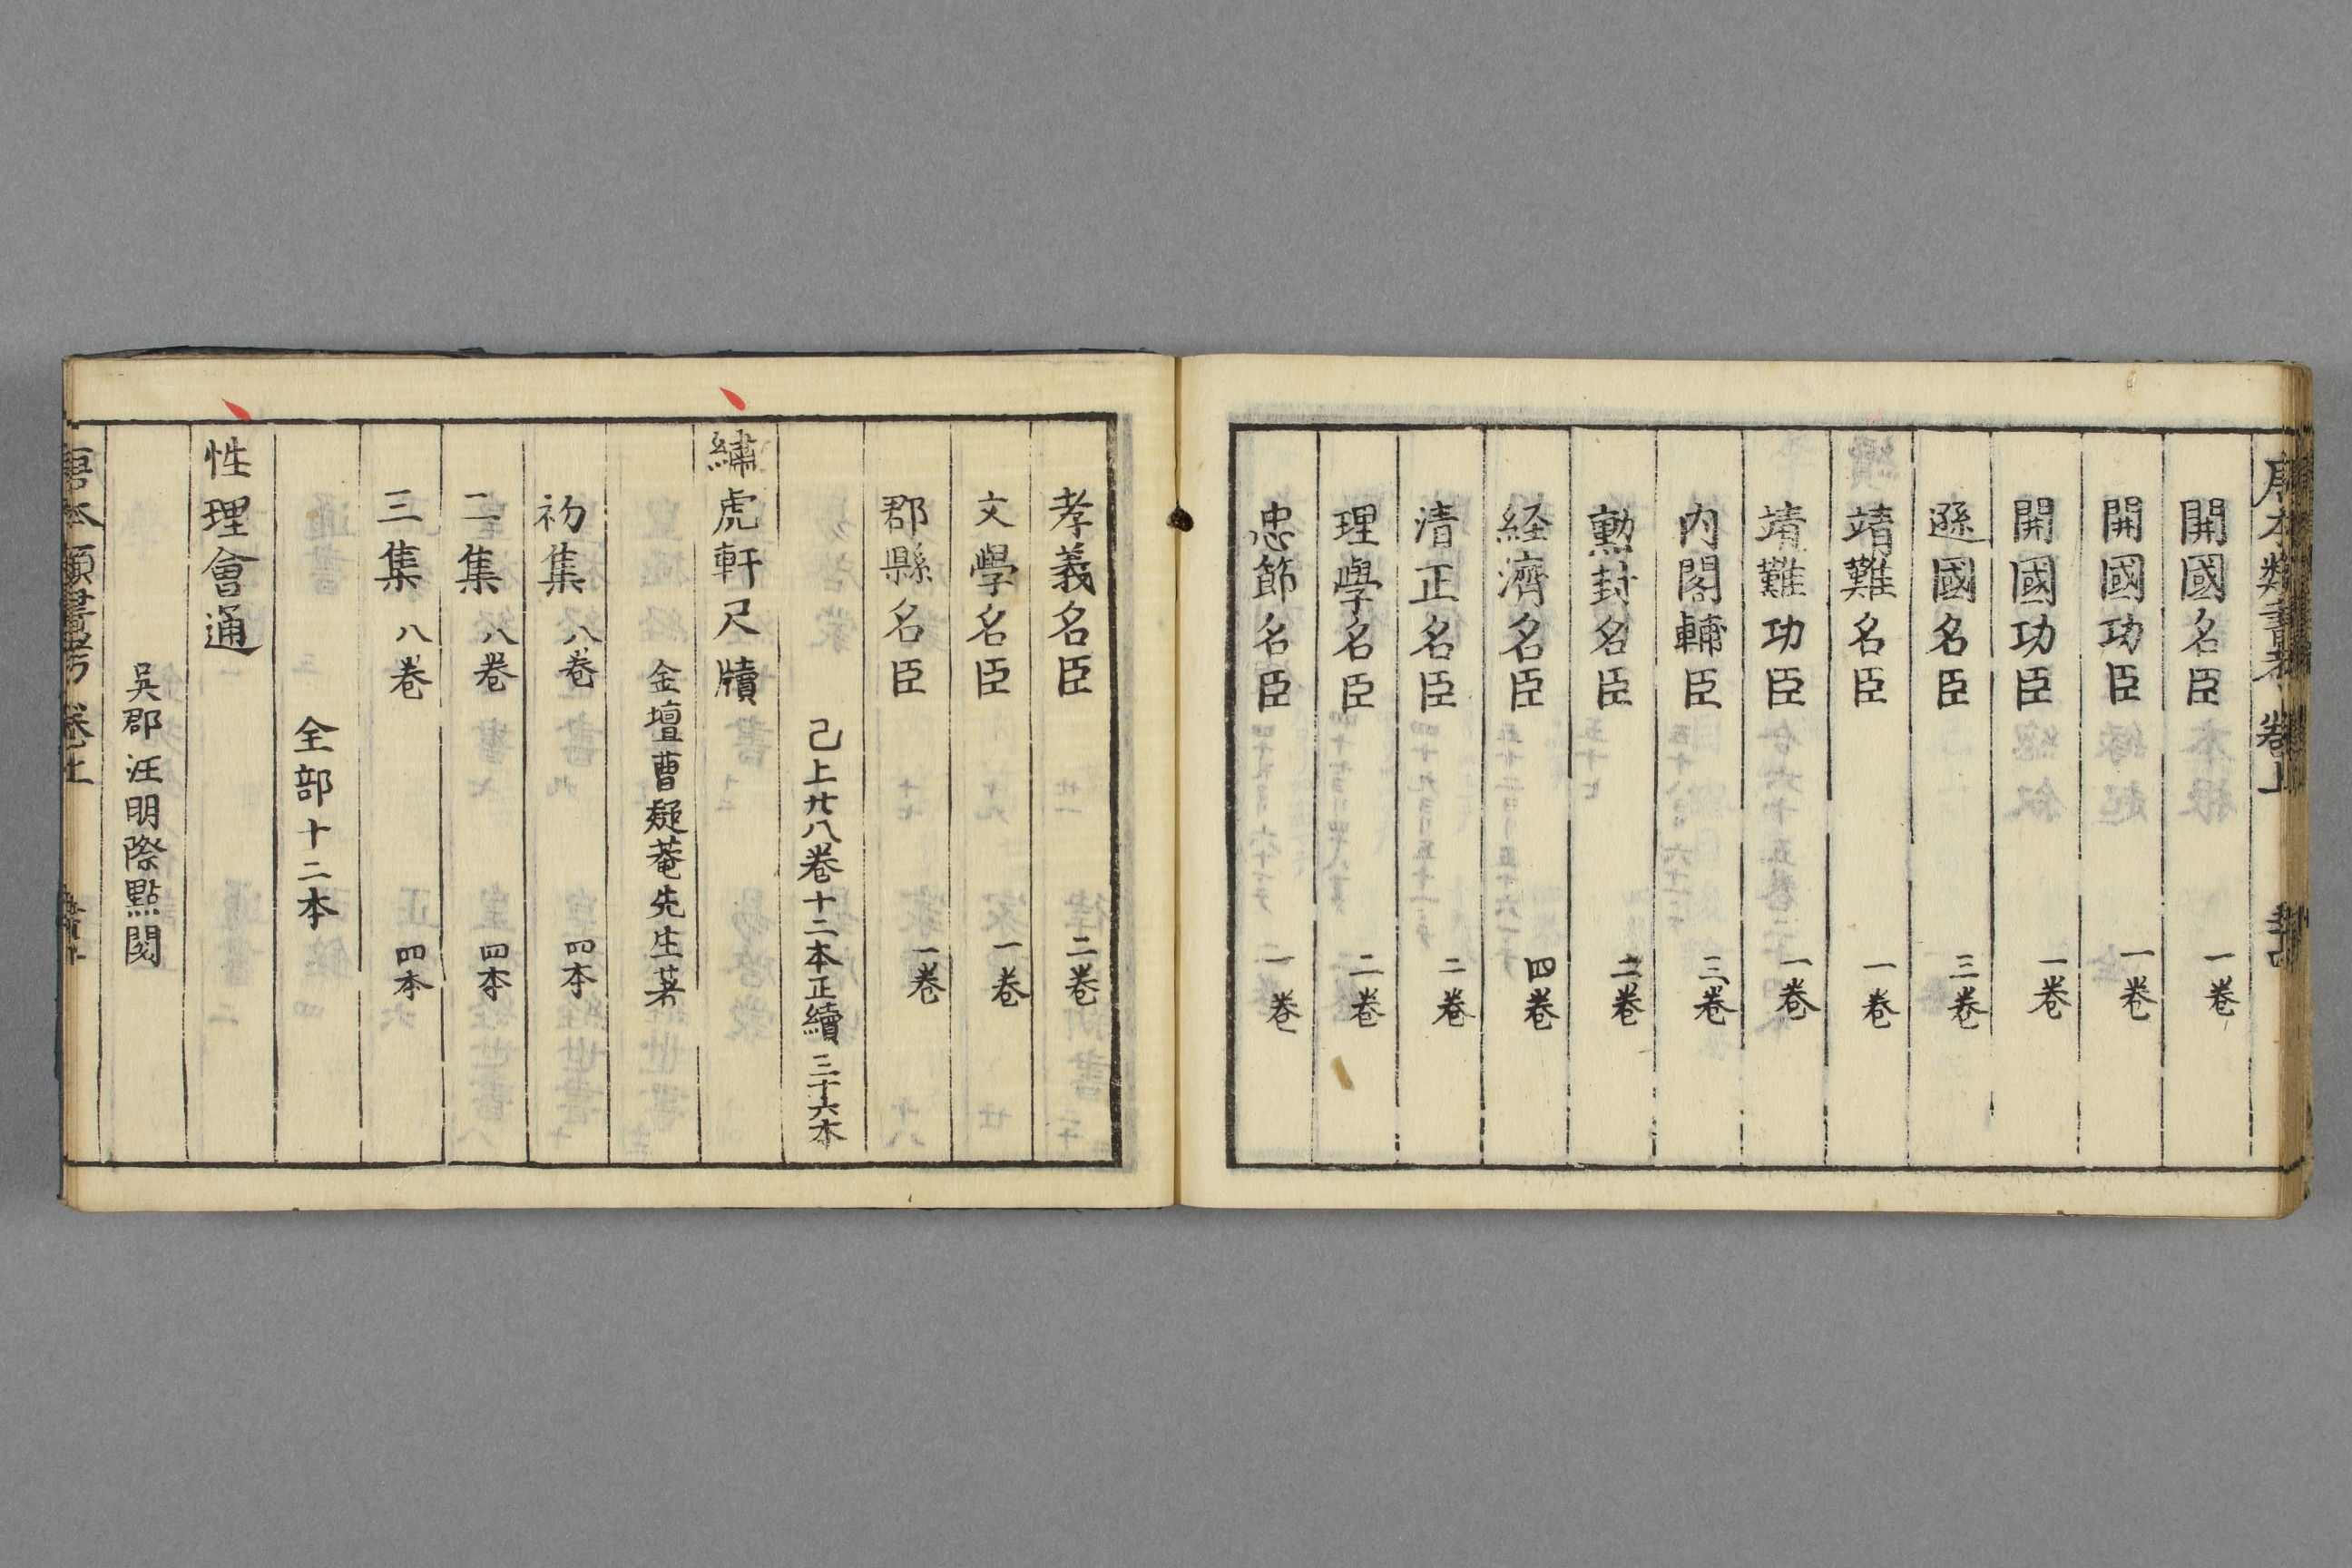 唐本類書考 卷上
開國名臣 一卷
開國功臣 一卷
開國功臣 一卷
遜國名臣 三卷
靖難名臣 一卷
靖難功臣 一卷
内閣輔臣 三卷
勲封名臣 二卷
経濟名臣 四卷
清正名臣 二卷
理學名臣 二卷
忠節名臣 一卷
孝義名臣 二卷
文學名臣 一卷
郡縣名臣 一卷
己上廿八卷十二本正續三十六本
繡虎軒尺牘
金壇曹疑菴先生著
初集 八卷 四本
二集 八卷 四本
三集 八卷 四本
全部十二本
性理會通
吳郡汪明際點閱
唐本類書考 卷上